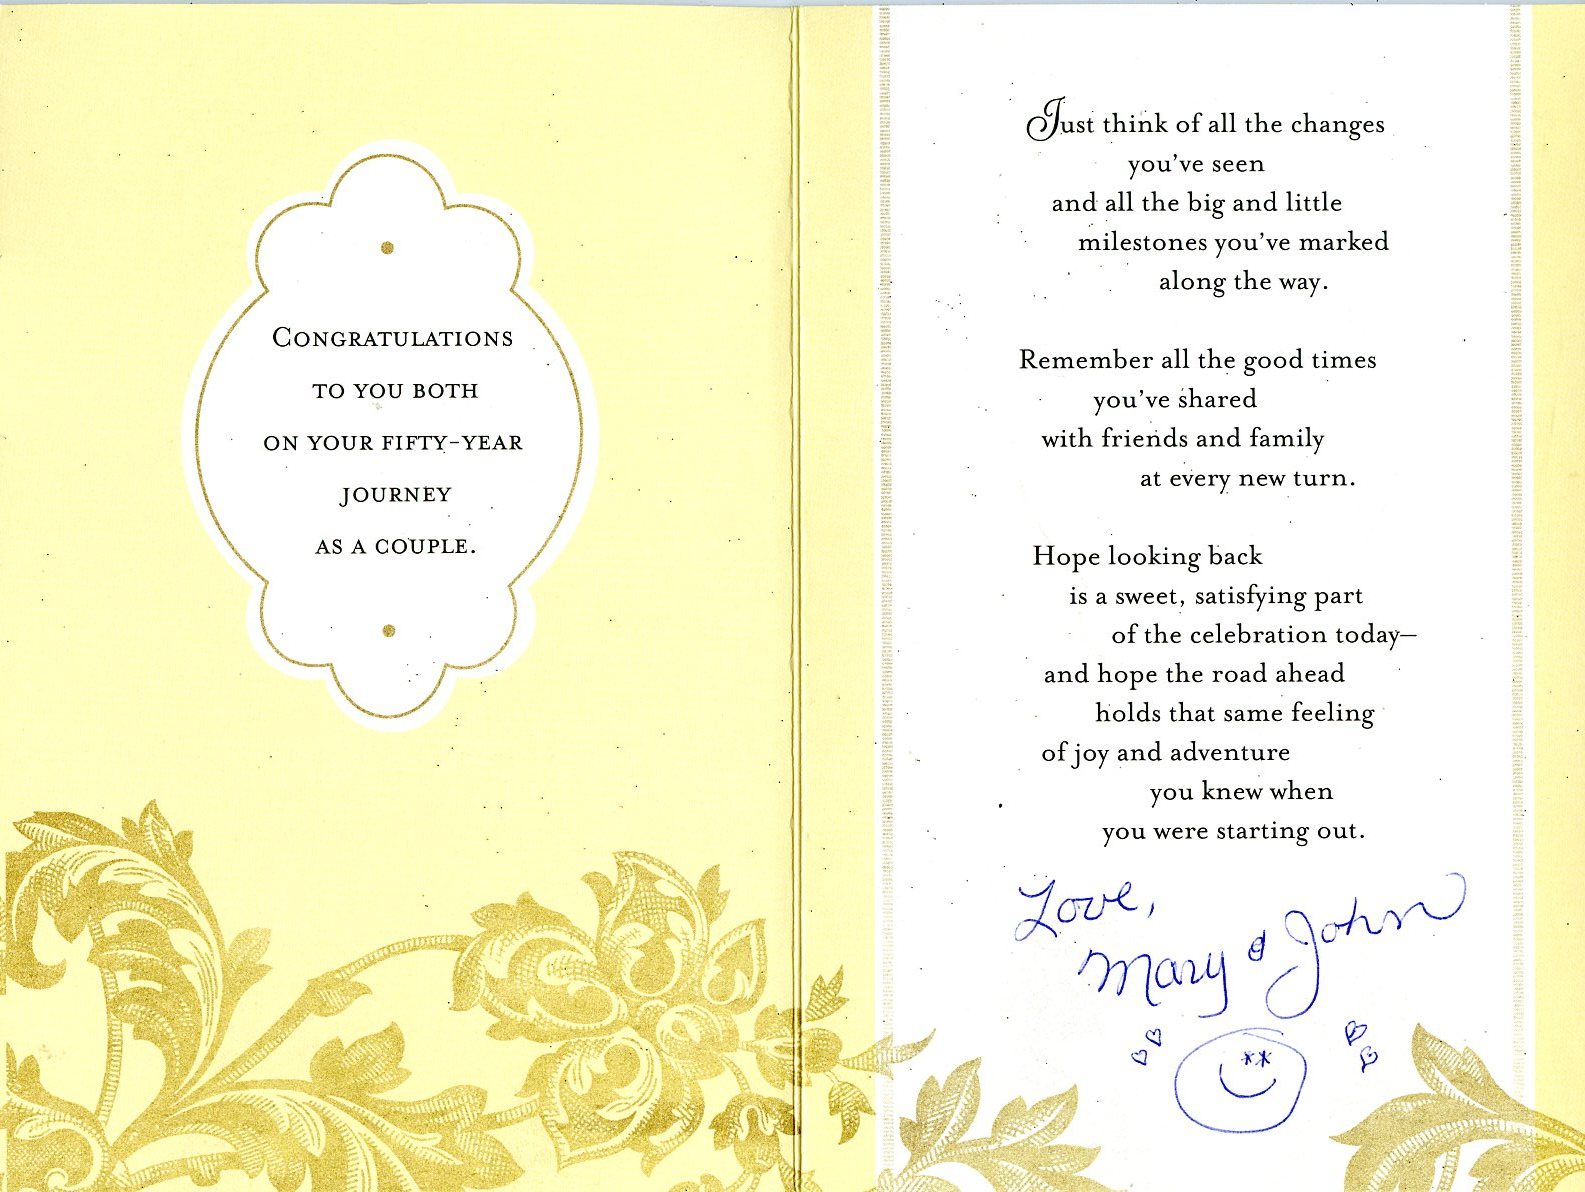 CONGRATULATIONS
TO YOU BOTH
ON YOUR FIFTY-YEAR
JOURNEY
AS A COUPLE.
Just think of all the changes
you've seen
and all the big and little
milestones you've marked
along the way.
Remember all the good times
you've shared
with friends and family
at every new turn.
Hope looking back
is a sweet, satisfying part
of the celebration today—
and hope the road ahead
holds that same feeling
of joy and adventure
you knew when
you were starting out.
Love,
Mary & John